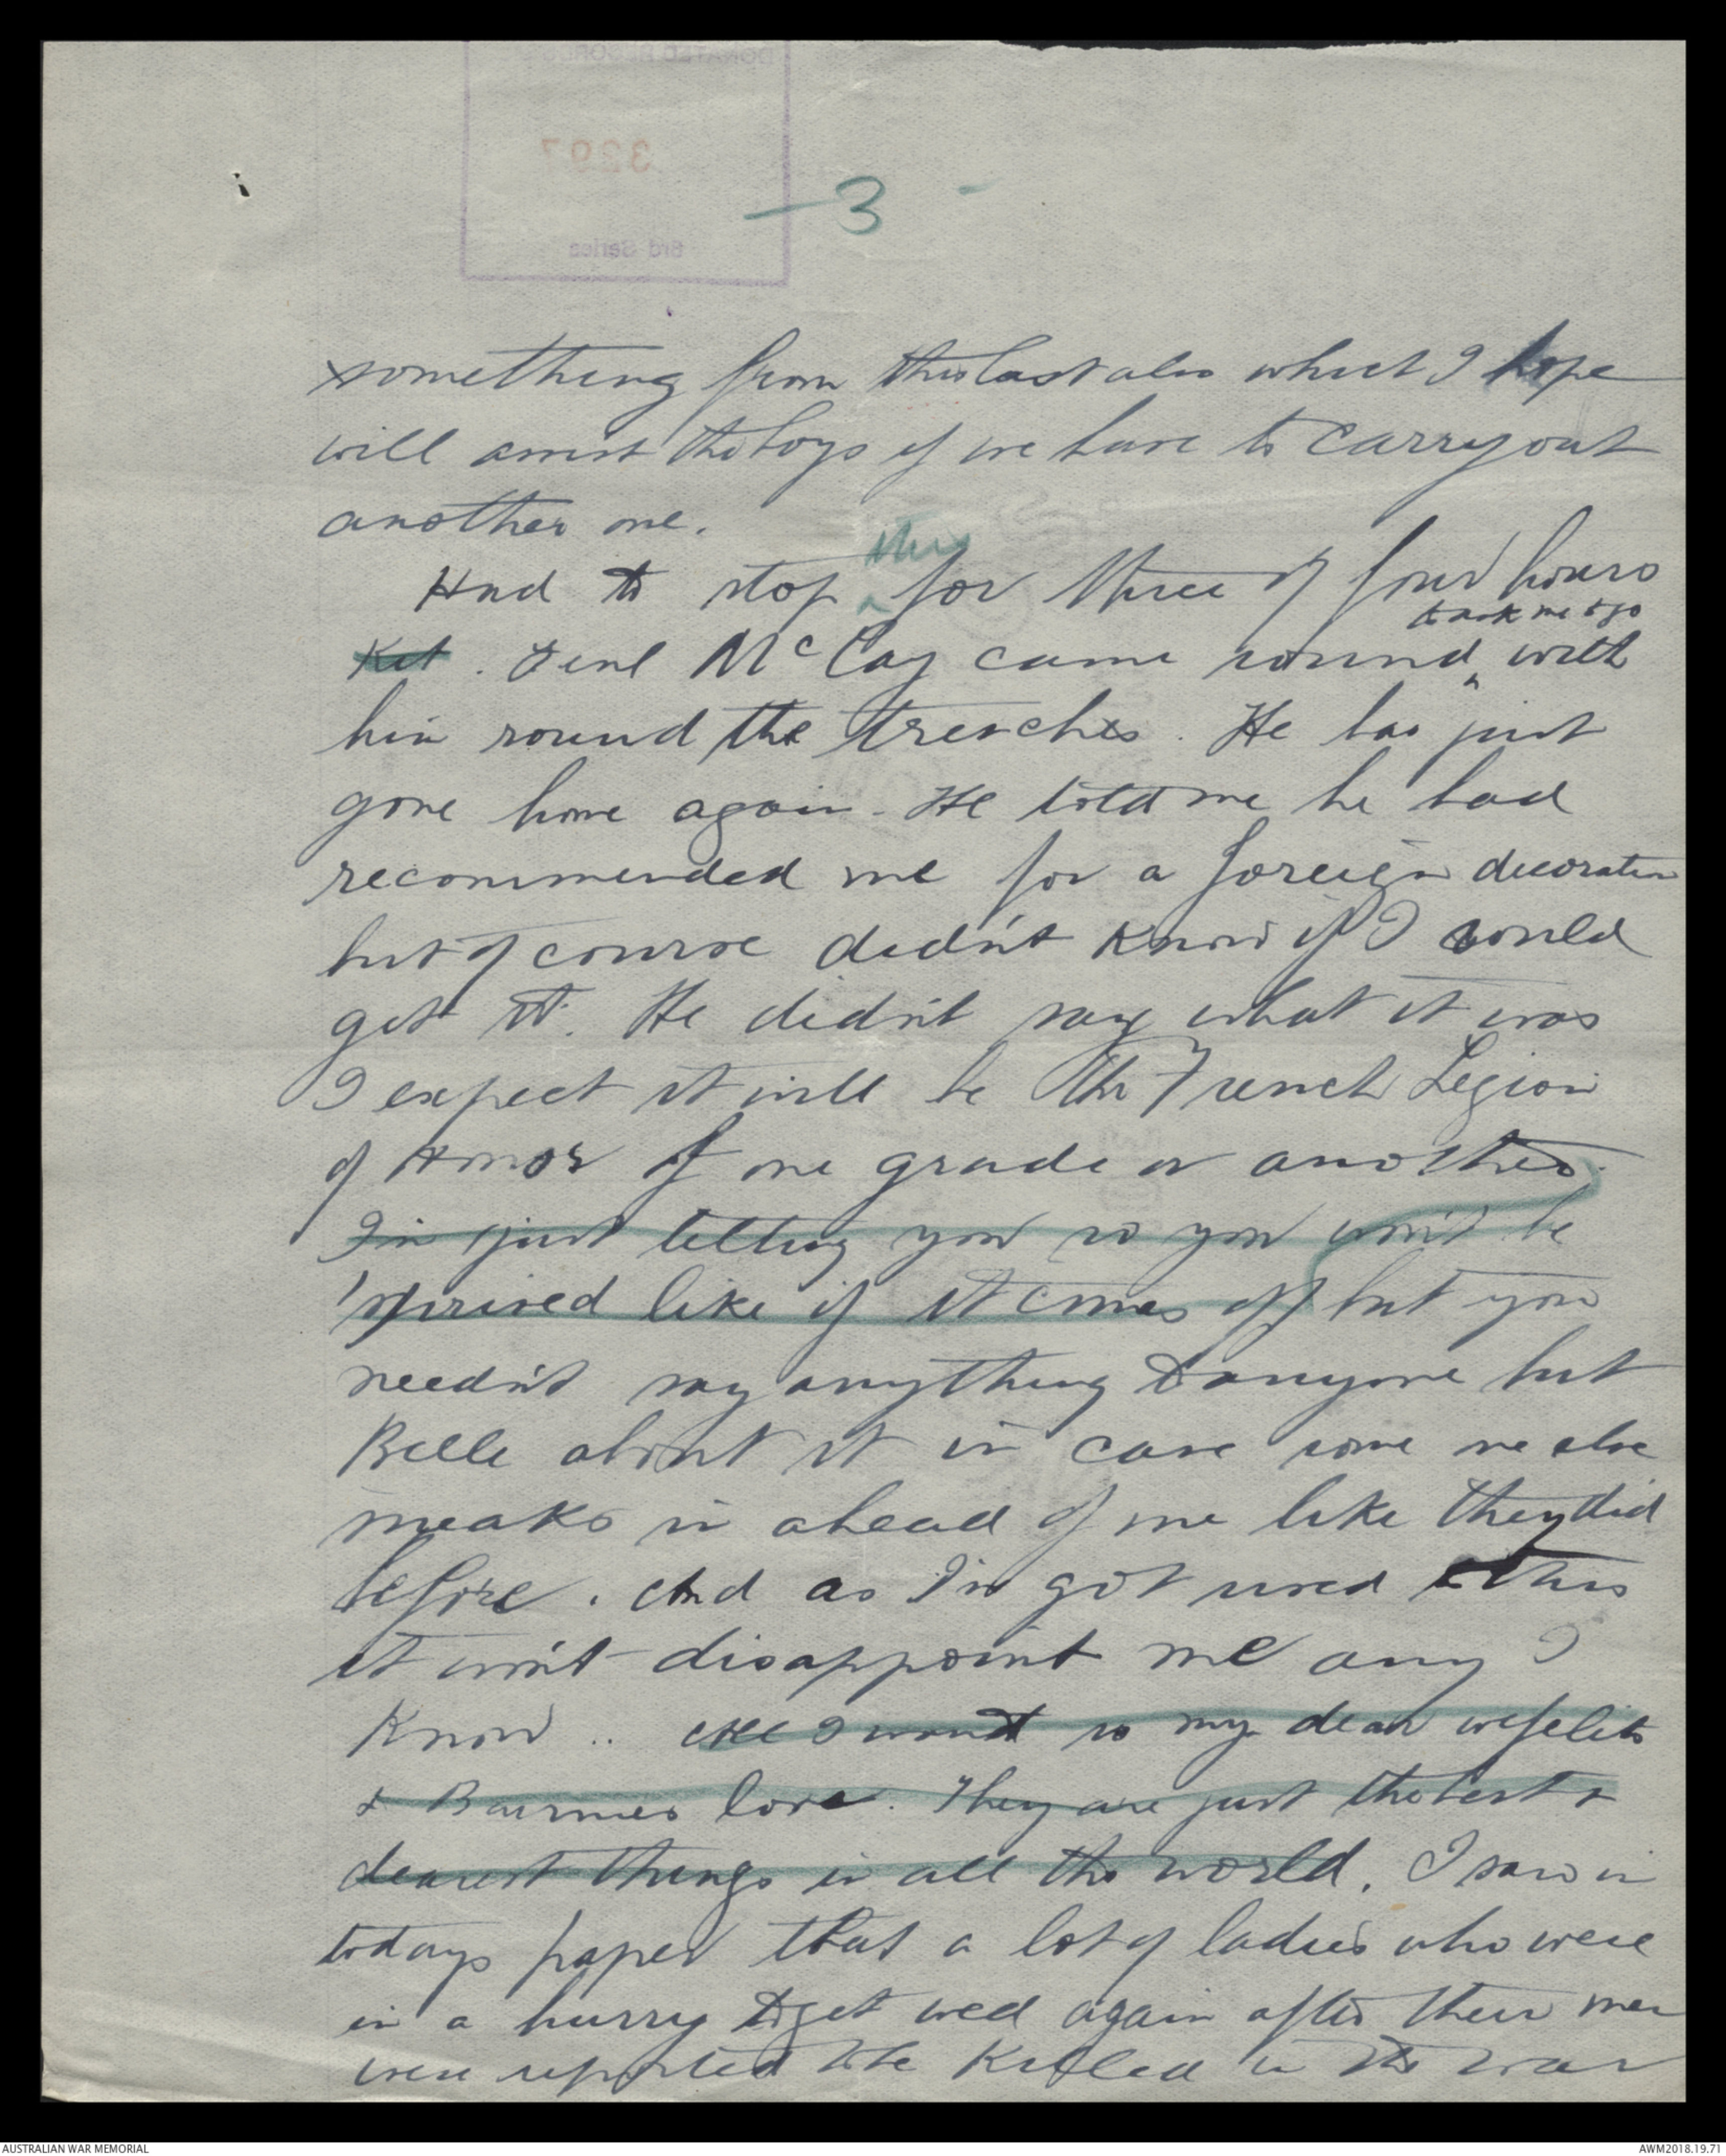 DONATED RECORDS
3297
3rd Series
— 3 -
something from this last also which I hope
will assist the boys if we have to carry out
another one.
Had to stop this for three or four hours
Ket. Genl McCay came round to ask me to go with
him round the trenches. He has just
gone home again. He told me he had
recommended me for a foreign decoration
but of course didn't know if I would
get it. He didn't say what it was
I expect it will be the French Legion
of Honor of one grade or another.
I'm just telling you so you won't be
'sprised like if it comes off but you
needn't say anything to anyone but
Belle about it in case some one else
sneaks in ahead of me like they did
before. And as I'm got used to this
it won't disappoint me any I
know .. All I want is my dear wifelets
& Bairnies love. They are just the best &
dearest things in all the world. I saw in
todays paper that a lot of ladies who were
in a hurry to get wed again after their men
were reported to be killed in the war
AUSTRALIAN WAR MEMORIAL
AWM2018.19.71